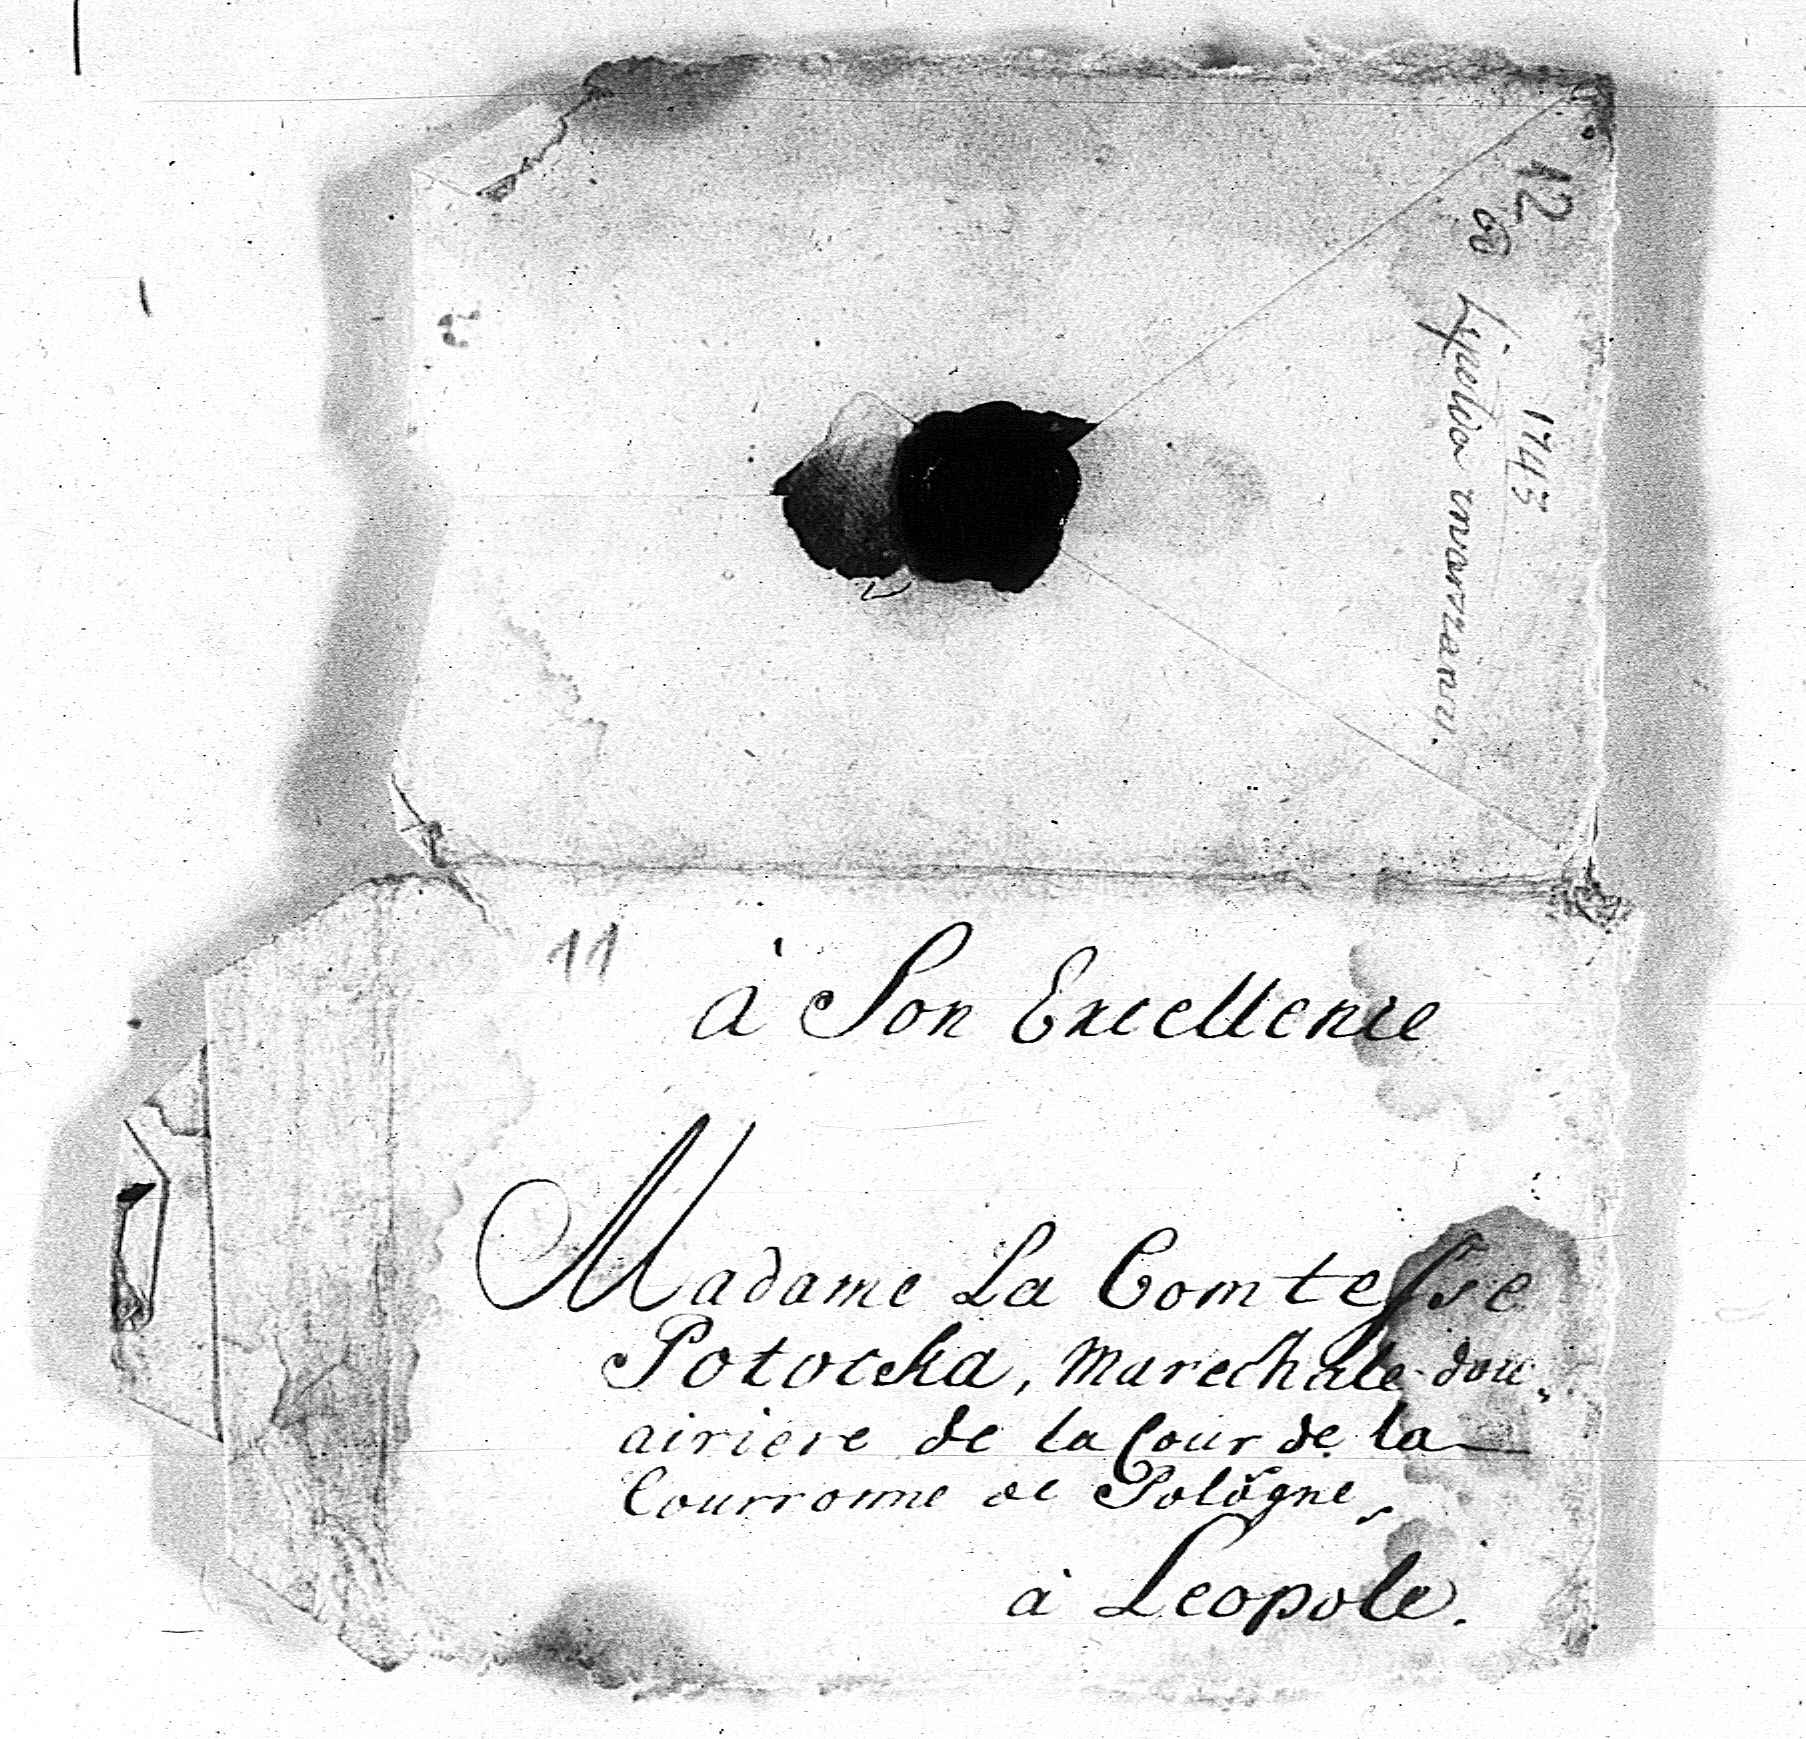 12
1743
11
à Son Excellence
Madame La Comtesse
Potocka, Marechale dou„
airiere de la Cour de la
Courronne de Pologne,
à Leopole.